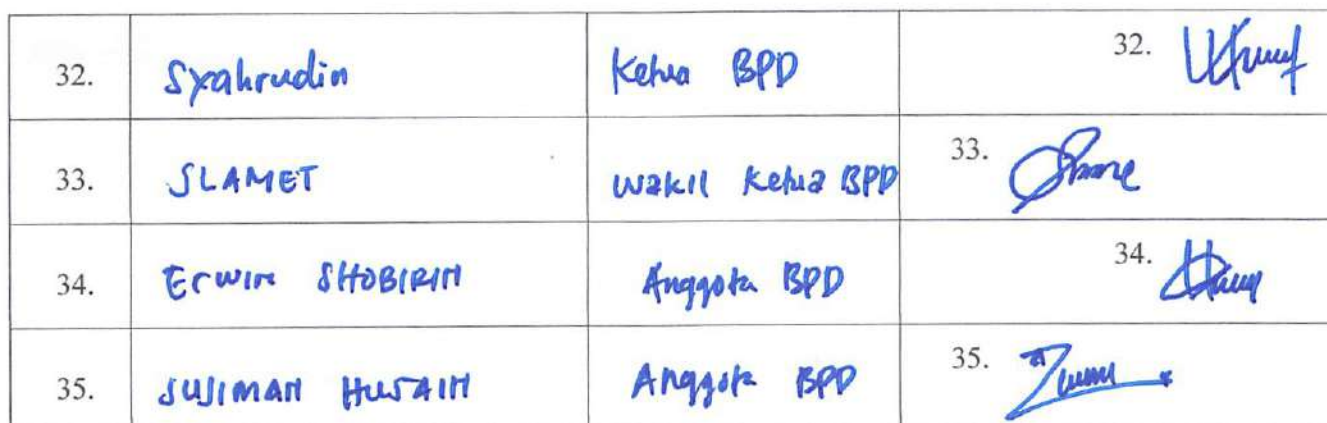 32. Syahrudin Ketua BPD 32.
33. SLAMET Wakil Ketua BPD 33.
34. Erwin SHOBIRIN Anggota BPD 34.
35. SUJIMAN HUSAIN Anggota BPD 35.